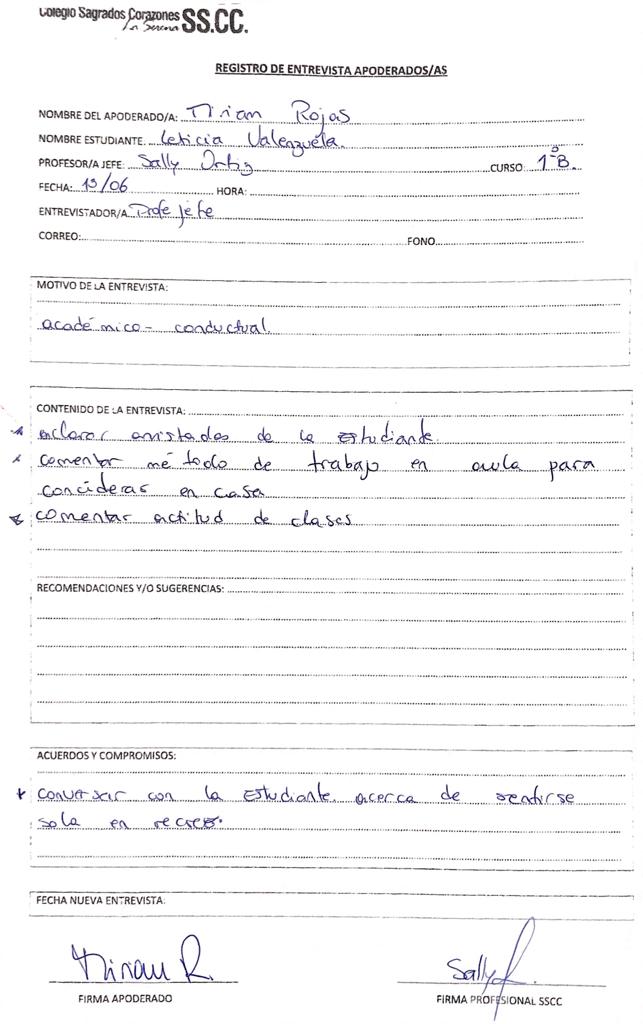 Colegio Sagrados Corazones
La Serena SS.CC.
REGISTRO DE ENTREVISTA APODERADOS/AS
NOMBRE DEL APODERADO/A: Mirian Rojas
NOMBRE ESTUDIANTE: Leticia Valenzuela.
PROFESOR/A JEFE: Sally Ortiz CURSO 1°B.
FECHA: 13/06 HORA:
ENTREVISTADOR/A Profe jefe
CORREO: FONO
MOTIVO DE LA ENTREVISTA:
académico - conductual
CONTENIDO DE LA ENTREVISTA:
* aclarar amistades de la estudiante
* comentar método de trabajo en aula para
concideras en casa
* comentar actitud de clases
RECOMENDACIONES Y/O SUGERENCIAS:
ACUERDOS Y COMPROMISOS:
* conversar con la estudiante acerca de sentirse
sola en recreo.
FECHA NUEVA ENTREVISTA:
Mirian R. Sally
FIRMA APODERADO FIRMA PROFESIONAL SSCC